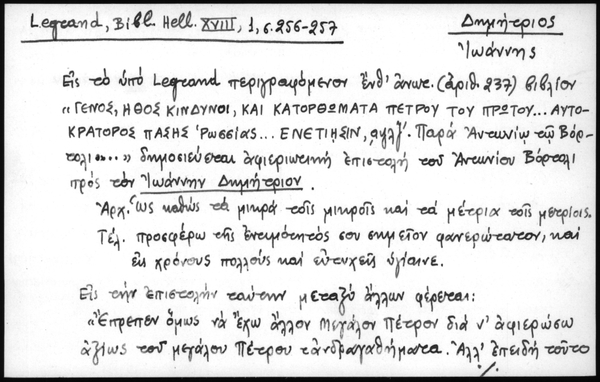 Legrand, Bibl. Hell. XVIII, 1, σ. 256-257
Δημήτριος
Ἰωάννης
Εἰς τὸ ὑπὸ Legrand περιγραφόμενον ἔνθ' ἄνωτ. (ἀριθ. 237) βιβλίον
"ΓΕΝΟΣ, ΗΘΟΣ ΚΙΝΔΥΝΟΙ, ΚΑΙ ΚΑΤΟΡΘΩΜΑΤΑ ΠΕΤΡΟΥ ΤΟΥ ΠΡΩΤΟΥ... ΑΥΤΟ-
ΚΡΑΤΟΡΟΣ ΠΑΣΗΣ Ῥωσσίας... ΕΝΕΤΙΗΣΙΝ, αψλζ'. Παρὰ Ἀντωνίῳ τῷ Βόρ-
τολι..." δημοσιεύεται ἀφιερωτικὴ ἐπιστολὴ τοῦ Ἀντωνίου Βόρτολι
πρὸς τὸν Ἰωάννην Δημήτριον.
Ἀρχ. Ὡς καθὼς τὰ μικρὰ τοῖς μικροῖς καὶ τὰ μέτρια τοῖς μετρίοις.
Τέλ. προσφέρω τῆς ἐντιμότητός σου σημεῖον φανερώτατον, καὶ
εἰς χρόνους πολλοὺς καὶ εὐτυχεῖς ὑγίαινε.
Εἰς τὴν ἐπιστολὴν ταύτην μεταξὺ ἄλλων φέρεται:
"Ἔπρεπεν ὅμως νὰ ἔχω ἄλλον Μεγάλον Πέτρον διὰ ν' ἀφιερώσω
ἀξίως τοῦ μεγάλου Πέτρου τἀνδραγαθήματα. Ἀλλ' ἐπειδὴ τοῦτο
./.